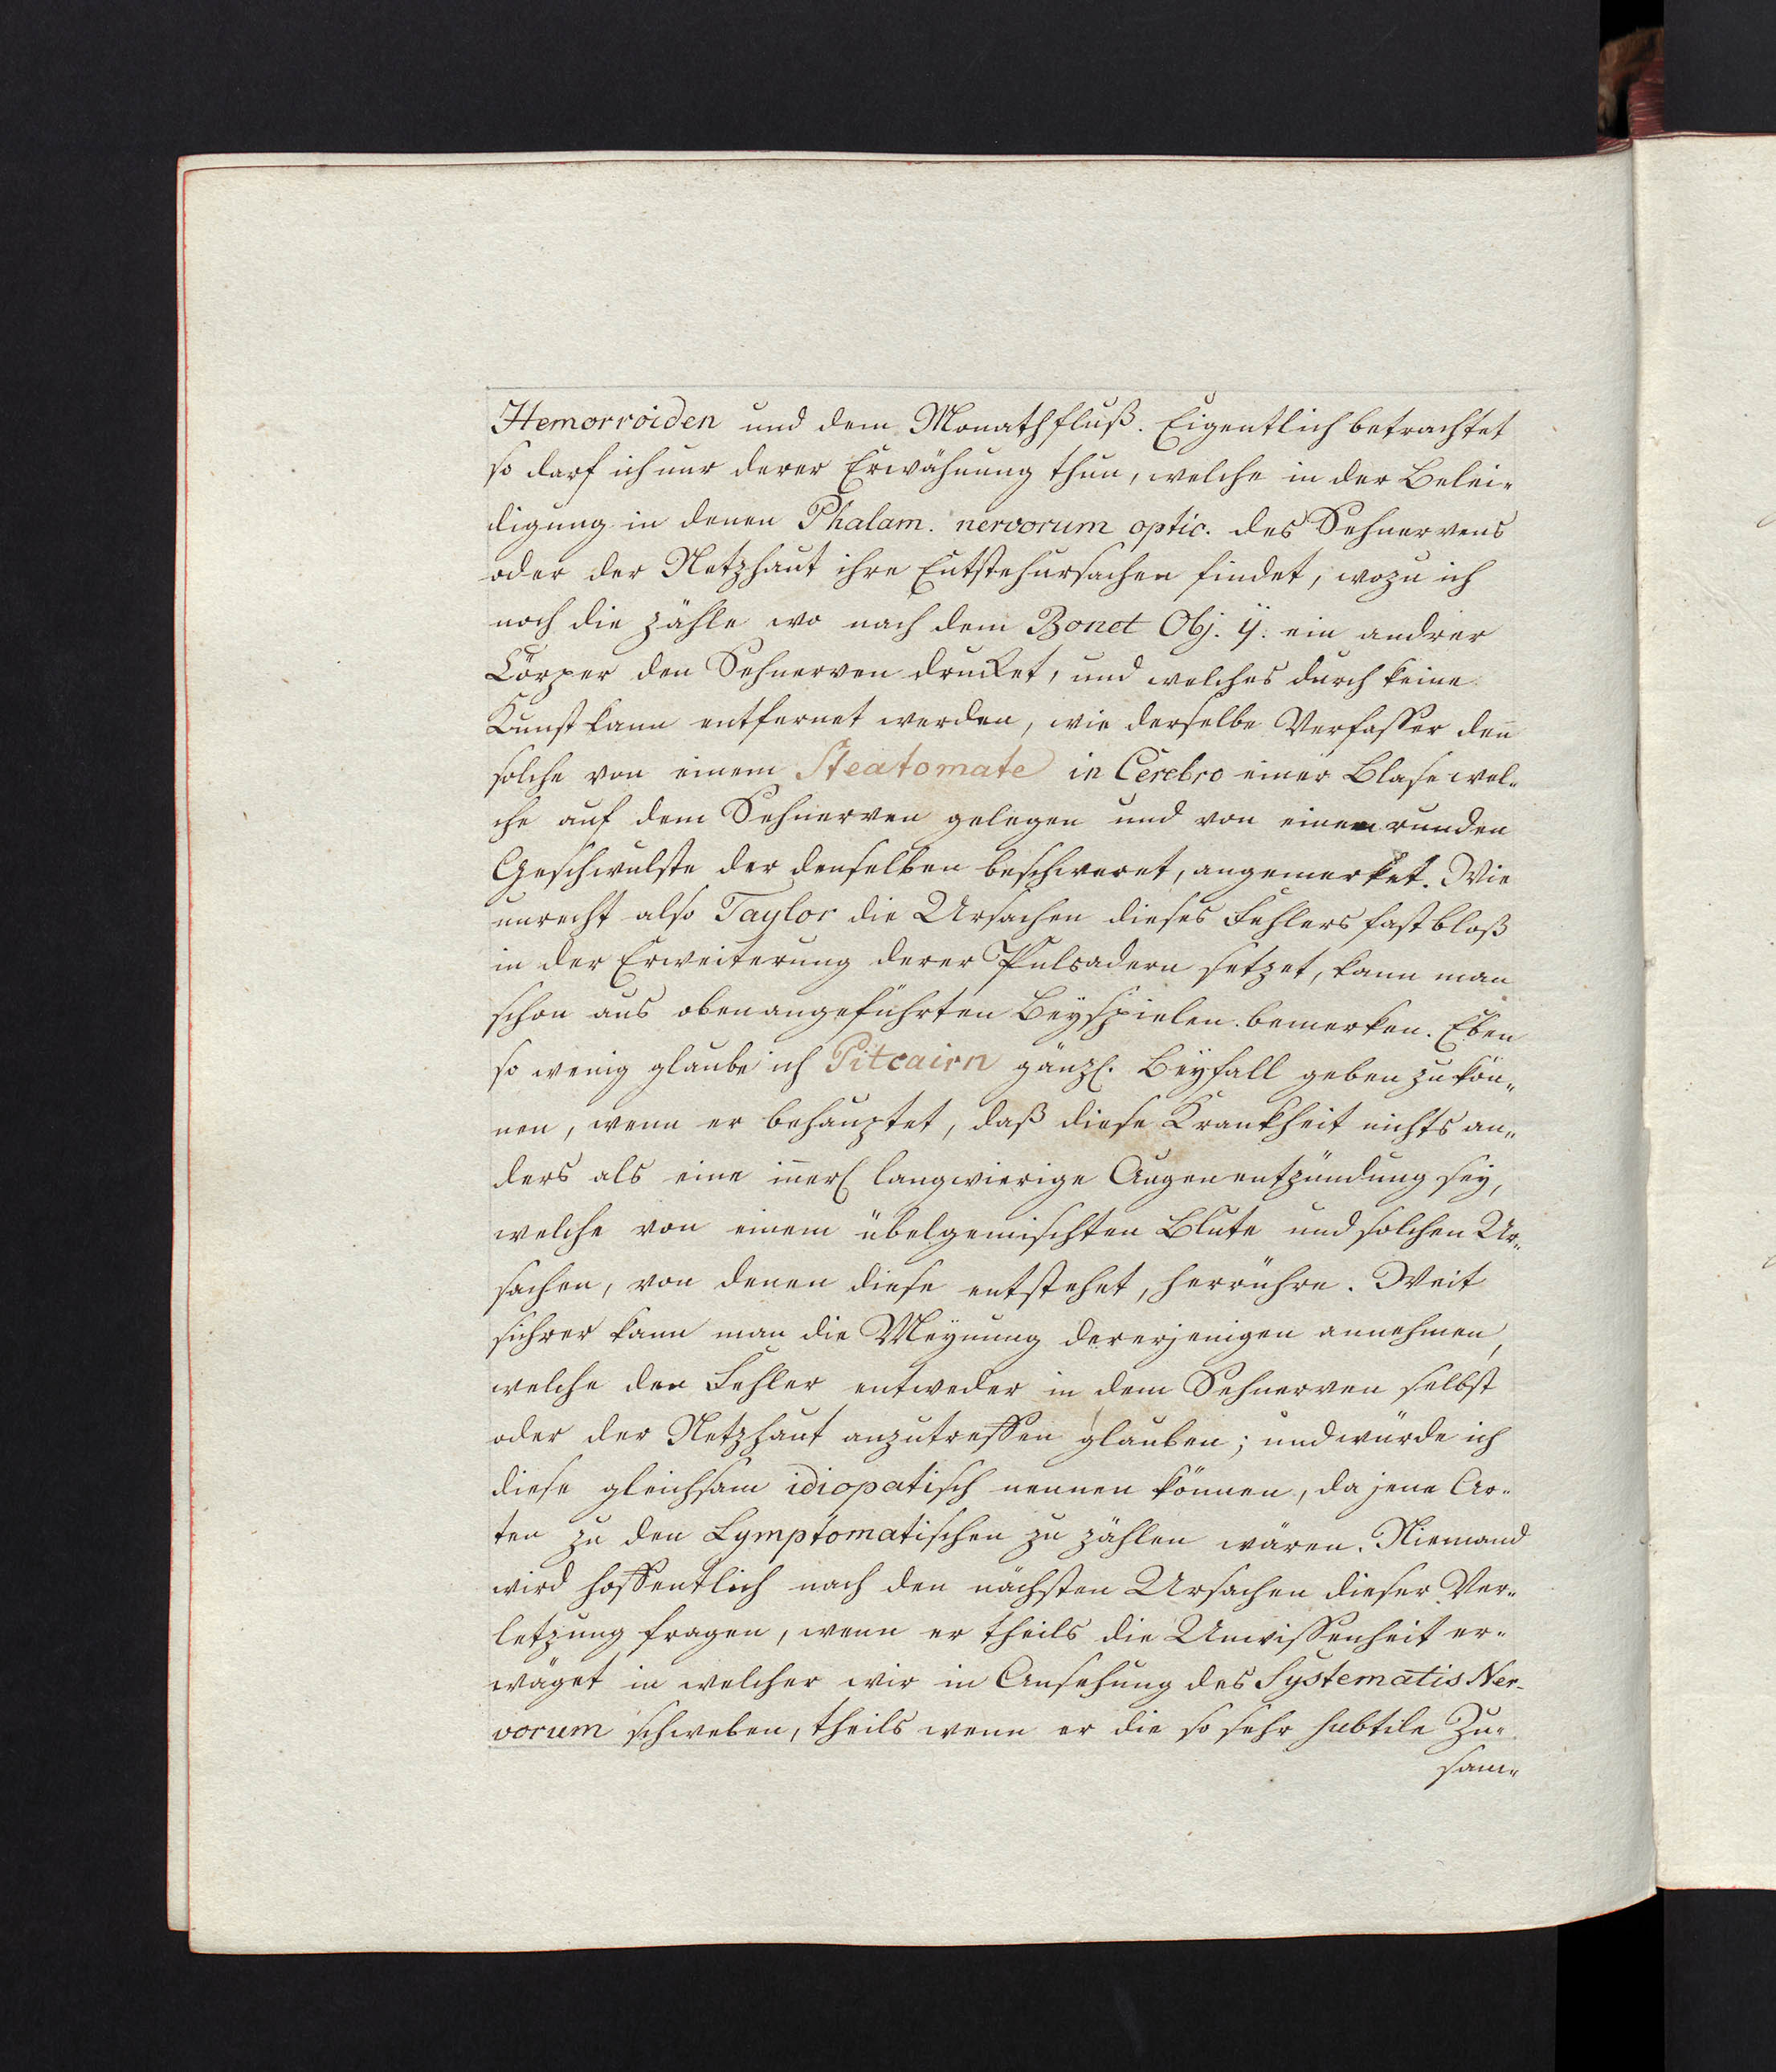 Hemorroiden und dem Monathfluß. Eigentlich betrachtet
so darf ich nur derer Erwähnung thun, welche in der Belei-
digung in denen Phalam. nervorum optic. des Sehnervens
oder der Netzhaut ihre Entstehursachen findet, wozu ich
noch die zähle wo nach dem Bonet Obj. ein andrer
Cörper den Sehnerven drucket, und welches durch keine
Kunst kann entfernet werden, wie derselbe Verfasser den̄
solche von einem Steatomate in Cerebro einer Blase wel-
che auf dem Sehnerven gelegen und von einem runden
Geschwulste der denselben beschweret, angemerket. Wie
unrecht also Taylor die Ursachen dieses Fehlers fast bloß
in der Erweiterung derer Pulsadern setzet, kann man
schon aus obenangeführten Beyspielen bemerken. Eben
so wenig glaube ich Pitcairn gänzl. Beyfall geben zu kön-
nen, wenn er behauptet, daß diese Krankheit nichts an-
ders als eine in̄erl langwierige Augenentzündung sey,
welche von einem übelgemischten Blute und solchen Ur-
sachen, von denen diese entstehet, herrühre. Weit
sichrer kann man die Meynung dererjenigen annehmen,
welche den Fehler entweder in dem Sehnerven selbst
oder der Netzhaut anzutreffen glauben; und würde ich
diese gleichsam idiopatisch nennen können, da jene Ar-
ten zu den Symptomatischen zu zählen wären. Niemand
wird hoffentlich nach den nächsten Ursachen dieser Ver-
letzung fragen, wenn er theils die Unwissenheit er-
wäget in welcher wir in Ansehung des Systematis Ner-
vorum schweben, theils wenn er die so sehr subtile Zu-
sam-